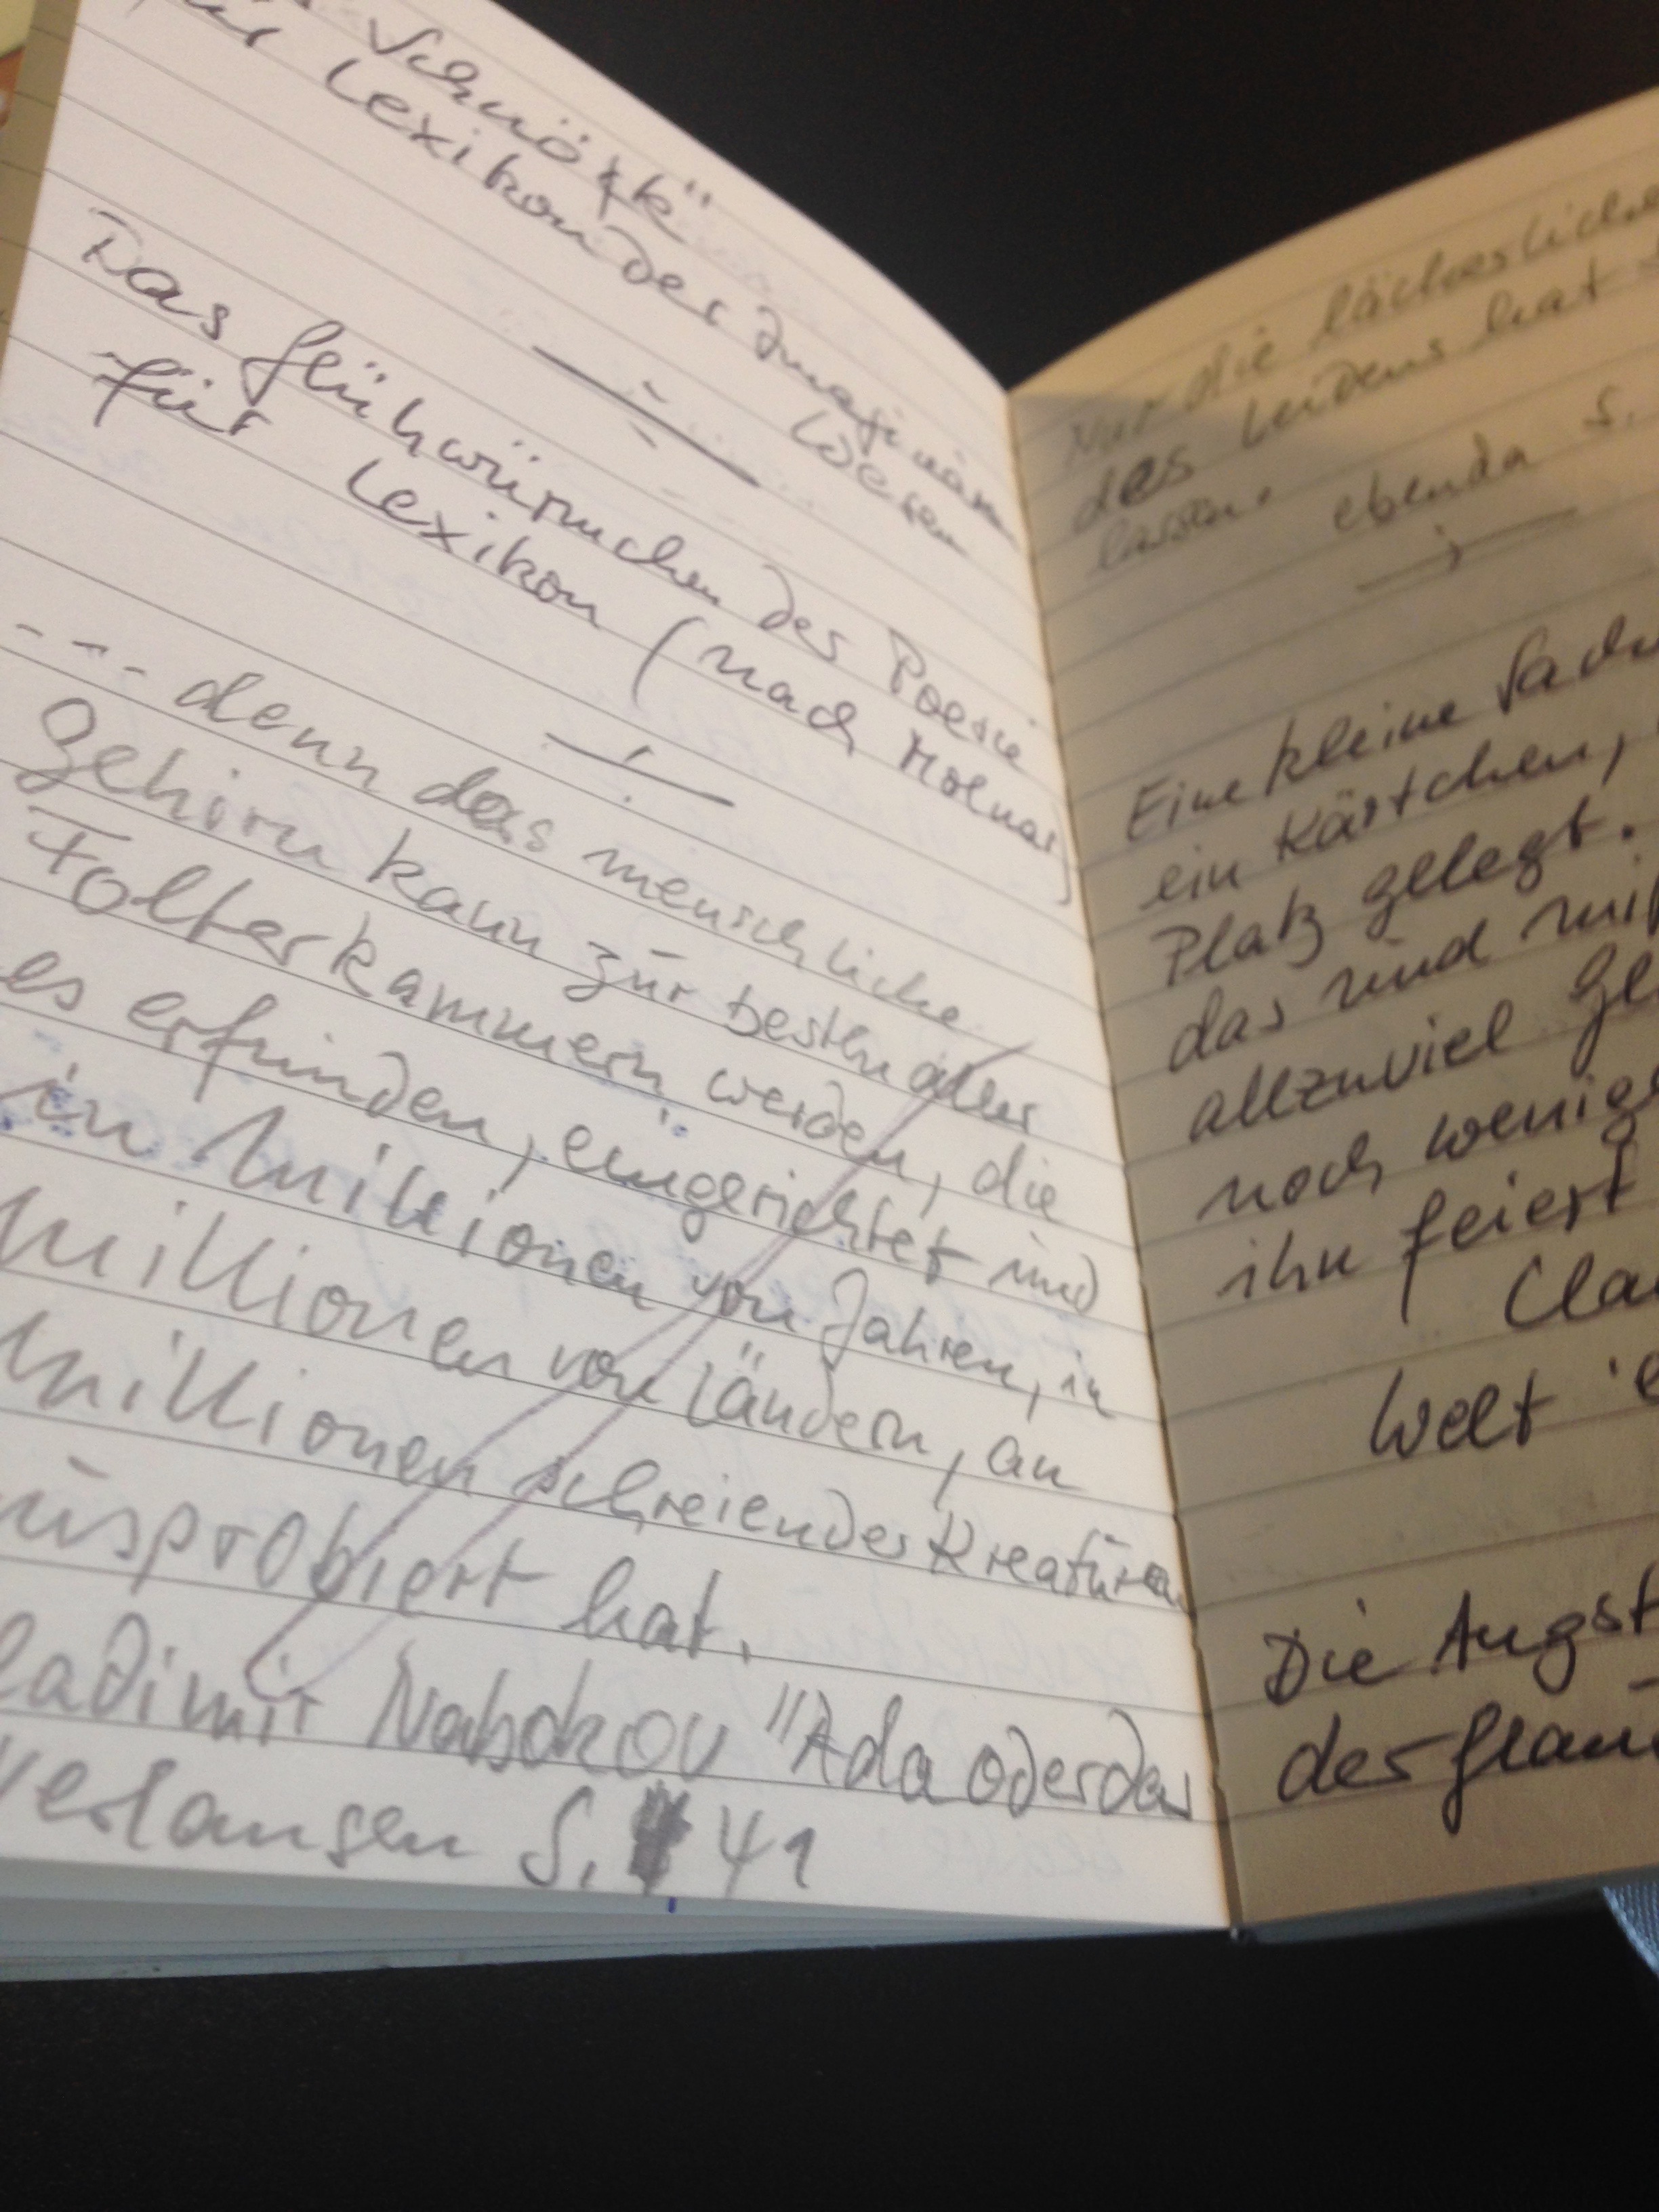 Schnörk"
für Lexikon der Imaginären
Wesen
Das Glühwürmchen der Poesie
für Lexikon (nach Molnar)
... denn das menschliche
Gehirn kann zur besten aller
Folterkammern werden, die
es erfunden, eingerichtet und
in Millionen von Jahren, in
Millionen von Ländern, an
Millionen schreiender Kreaturen
ausprobiert hat.
ladimir Nabokov "Ada oder das
Verlangen S. 41
Nur die lächerliche
des Leidens hat
lassen. ebenda S.
Eine kleine
ein Kästchen,
Platz gelegt.
das und mit
allzuviel
noch wenig
ihn feiert
Cla
Welt
Die Angst
der